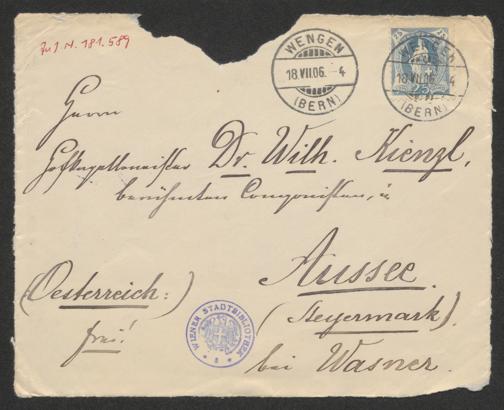 Zu I.N. 181.589
WENGEN
18.VII.06.-4
(BERN)
25
WENGEN
18.VII.06.-4
(BERN)
Herrn
Hofkapellmeister Dr. Wilh. Kienzl,
berühmten Componisten, in
Aussee
(Oesterreich:) (Steyermark).
frei!
bei Wasner.
WIENER STADTBIBLIOTHEK